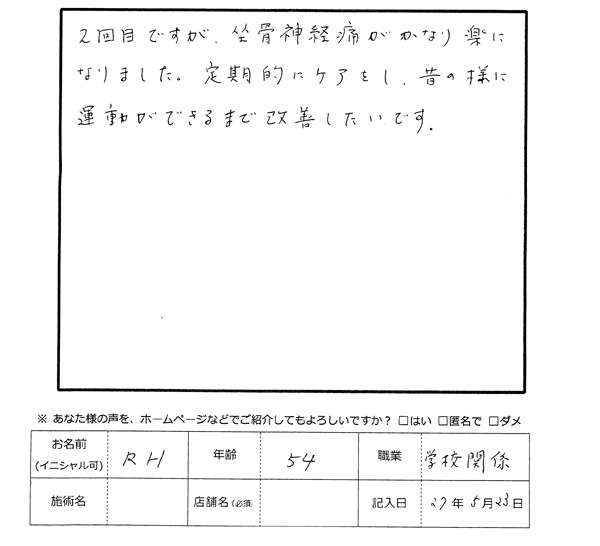 2回目ですが、坐骨神経痛がかなり楽に
なりました。定期的にケアをし、昔の様に
運動ができるまで改善したいです。
※ あなた様の声を、ホームページなどでご紹介してもよろしいですか？ □はい □匿名で □ダメ
お名前 (イニシャル可) RH 年齢 54 職業 学校関係
施術名 店舗名(必須) 記入日 27年5月23日